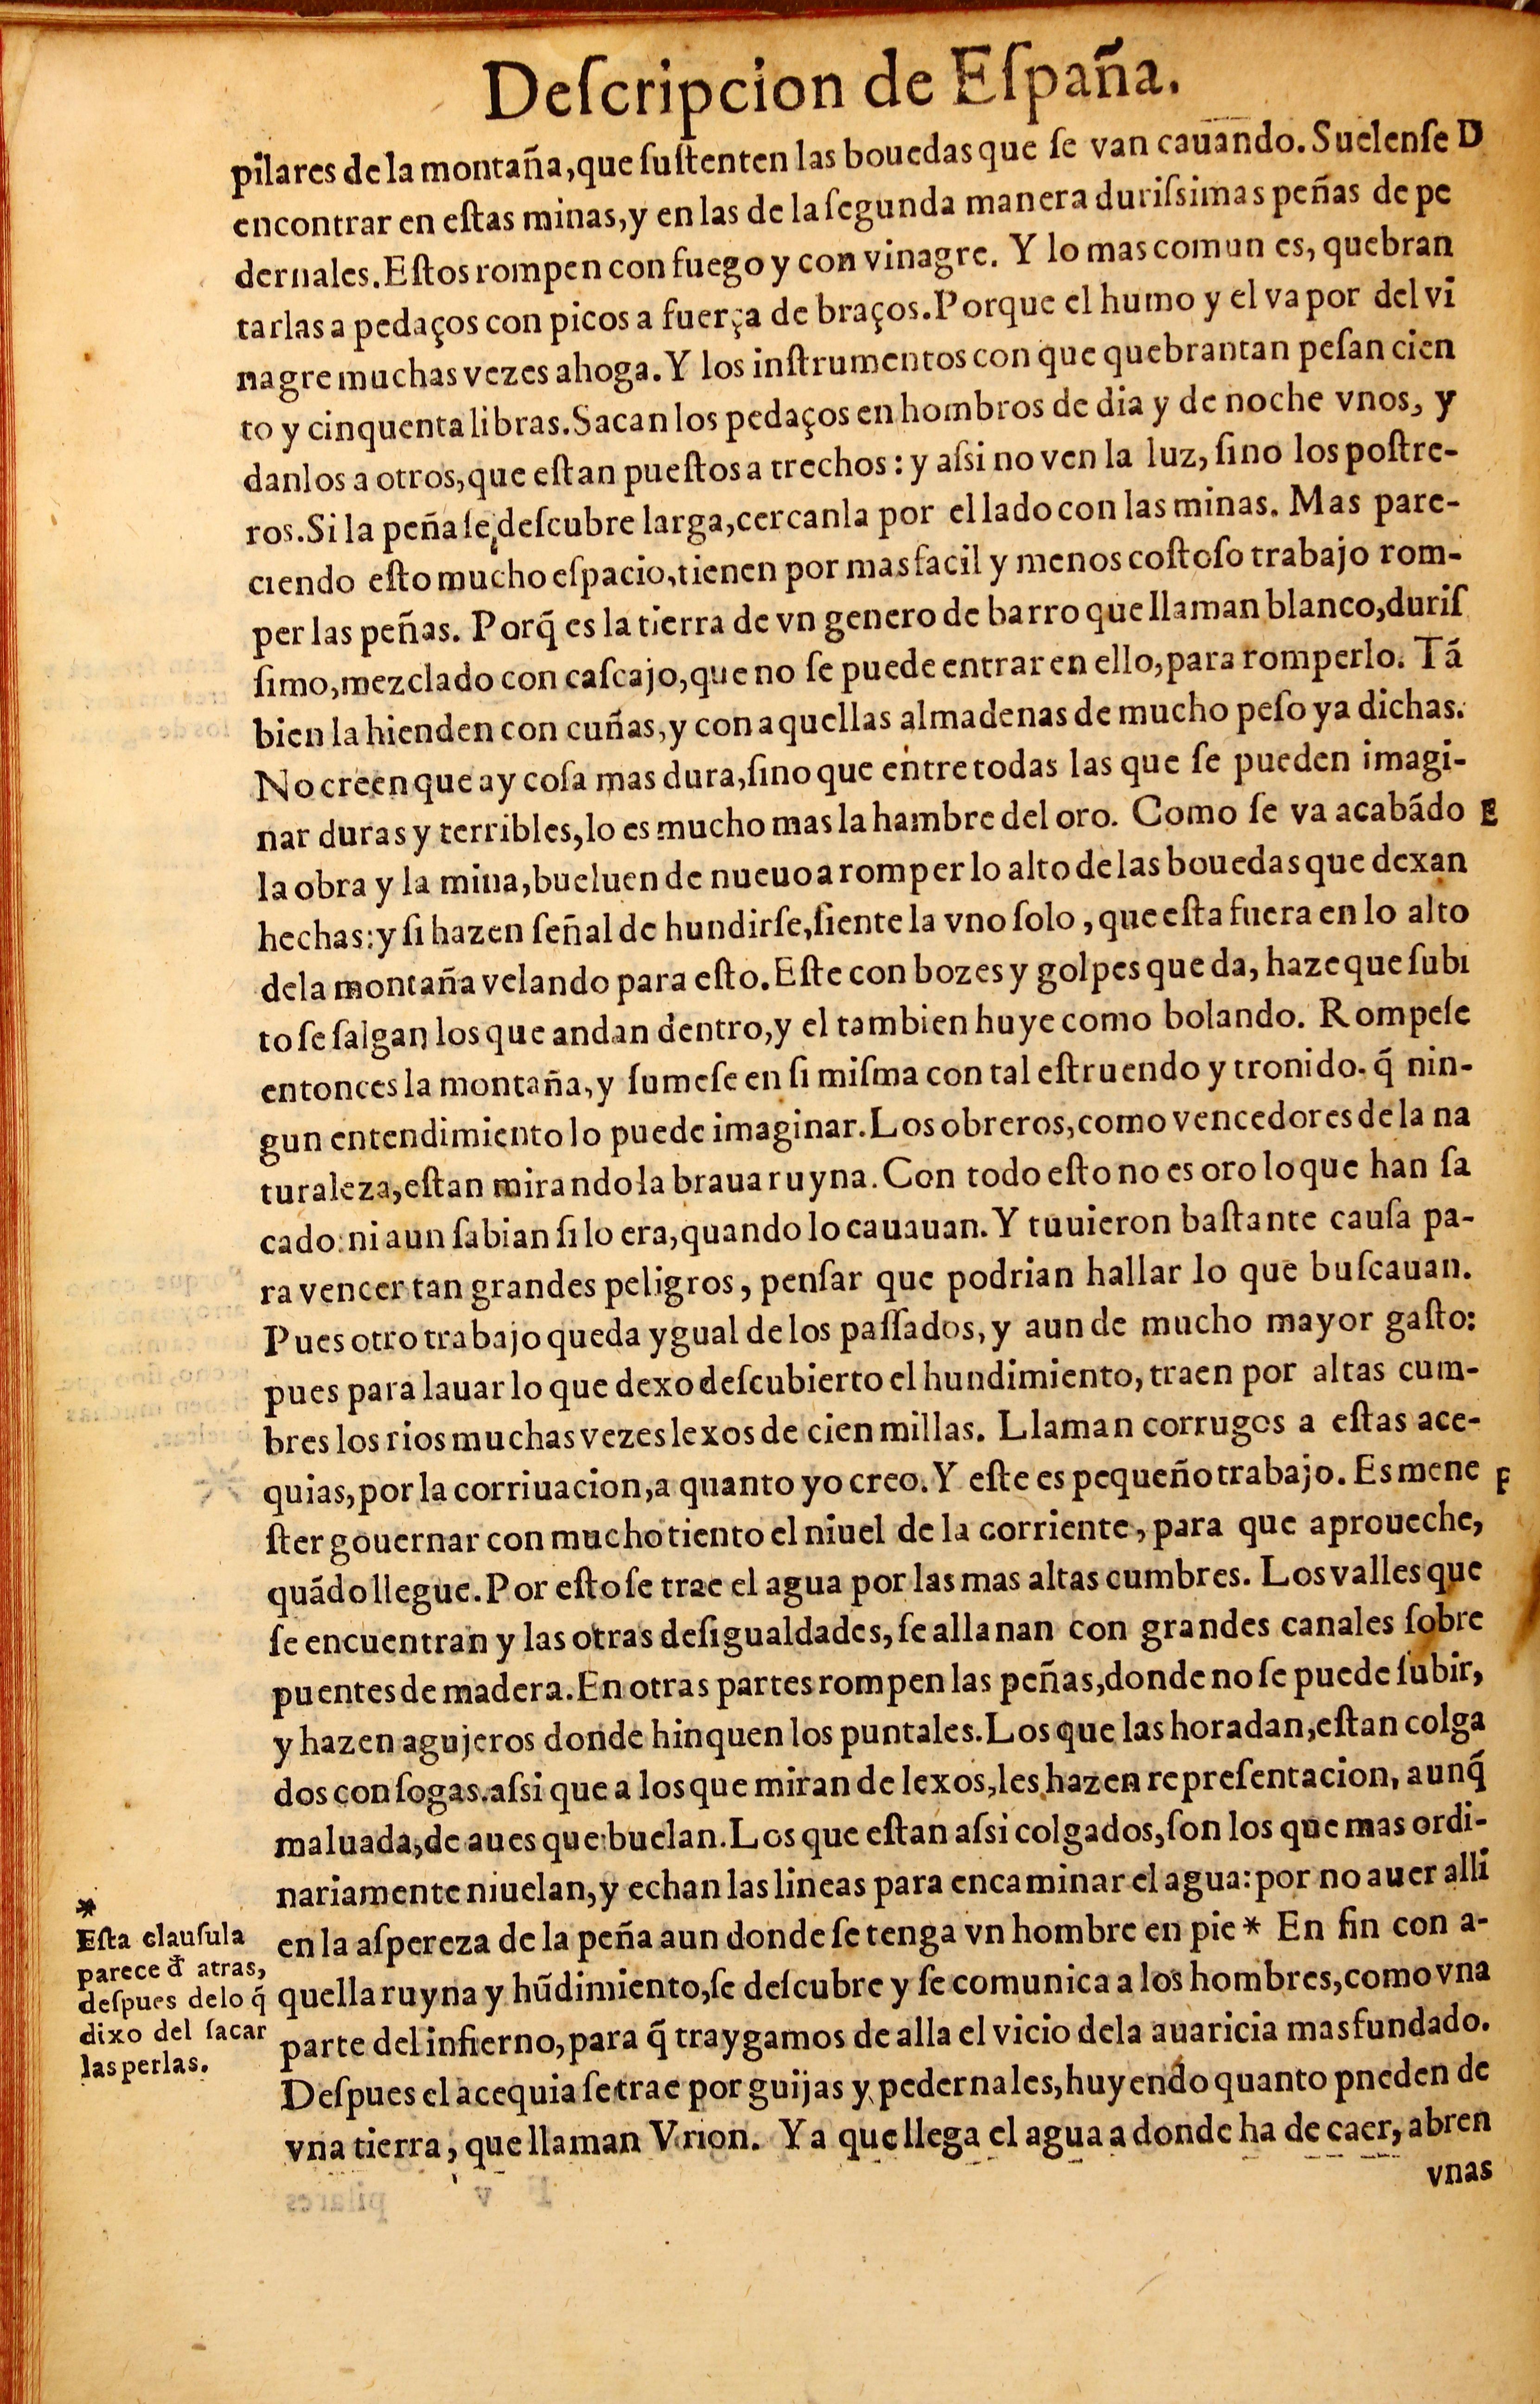 Deſcripcion de Eſpaña.
pilares de la montaña, que ſuſtenten las bouedas que ſe van cauando. Suelenſe D
encontrar en eſtas minas, y en las de la ſegunda manera duriſsimas peñas de pe
dernales. Eſtos rompen con fuego y con vinagre. Y lo mas comun es, quebran
tarlas a pedaços con picos a fuerça de braços. Porque el humo y el vapor del vi
nagre muchas vezes ahoga. Y los inſtrumentos con que quebrantan peſan cien
to y cinquenta libras. Sacan los pedaços en hombros de dia y de noche vnos, y
danlos a otros, que eſtan pueſtos a trechos: y aſsi no ven la luz, ſino los poſtre-
ros. Si la peña ſe deſcubre larga, cercanla por el lado con las minas. Mas pare-
ciendo eſto mucho eſpacio, tienen por mas facil y menos coſtoſo trabajo rom-
per las peñas. Porq̃ es la tierra de vn genero de barro que llaman blanco, duriſ
ſimo, mezclado con caſcajo, que no ſe puede entrar en ello, para romperlo. Tã
bien la hienden con cuñas, y con aquellas almadenas de mucho peſo ya dichas.
No creen que ay coſa mas dura, ſino que entre todas las que ſe pueden imagi-
nar duras y terribles, lo es mucho mas la hambre del oro. Como ſe va acabãdo E
la obra y la mina, bueluen de nueuo a romper lo alto de las bouedas que dexan
hechas: y ſi hazen ſeñal de hundirſe, ſiente la vno ſolo, que eſta fuera en lo alto
dela montaña velando para eſto. Eſte con bozes y golpes que da, haze que ſubi
to ſe ſalgan los que andan dentro, y el tambien huye como bolando. Rompeſe
entonces la montaña, y ſumeſe en ſi miſma con tal eſtruendo y tronido. q̃ nin-
gun entendimiento lo puede imaginar. Los obreros, como vencedores de la na
turaleza, eſtan mirando la braua ruyna. Con todo eſto no es oro lo que han ſa
cado: ni aun ſabian ſi lo era, quando lo cauauan. Y tuuieron baſtante cauſa pa-
ra vencer tan grandes peligros, penſar que podrian hallar lo que buſcauan.
Pues otro trabajo queda ygual de los paſſados, y aun de mucho mayor gaſto:
pues para lauar lo que dexo deſcubierto el hundimiento, traen por altas cum-
bres los rios muchas vezes lexos de cien millas. Llaman corrugos a eſtas ace-
quias, por la corriuacion, a quanto yo creo. Y eſte es pequeño trabajo. Es mene F
ſter gouernar con mucho tiento el niuel de la corriente, para que aproueche,
quãdo llegue. Por eſto ſe trae el agua por las mas altas cumbres. Los valles que
ſe encuentran y las otras deſigualdades, ſe allanan con grandes canales ſobre
puentes de madera. En otras partes rompen las peñas, donde no ſe puede ſubir,
y hazen agujeros donde hinquen los puntales. Los que las horadan, eſtan colga
dos con ſogas. aſsi que a los que miran de lexos, les hazen repreſentacion, aunq̃
maluada, de aues que buelan. Los que eſtan aſsi colgados, ſon los que mas ordi-
nariamente niuelan, y echan las lineas para encaminar el agua: por no auer alli
en la aſpereza de la peña aun donde ſe tenga vn hombre en pie * En fin con a-
quella ruyna y hũdimiento, ſe deſcubre y ſe comunica a los hombres, como vna
parte del infierno, para q̃ traygamos de alla el vicio dela auaricia mas fundado.
Deſpues el acequia ſe trae por guijas y pedernales, huyendo quanto pneden de
vna tierra, que llaman Vrion. Ya que llega el agua a donde ha de caer, abren
vnas
*
Eſta clauſula
parece đ atras,
deſpues delo q̃
dixo del ſacar
las perlas.